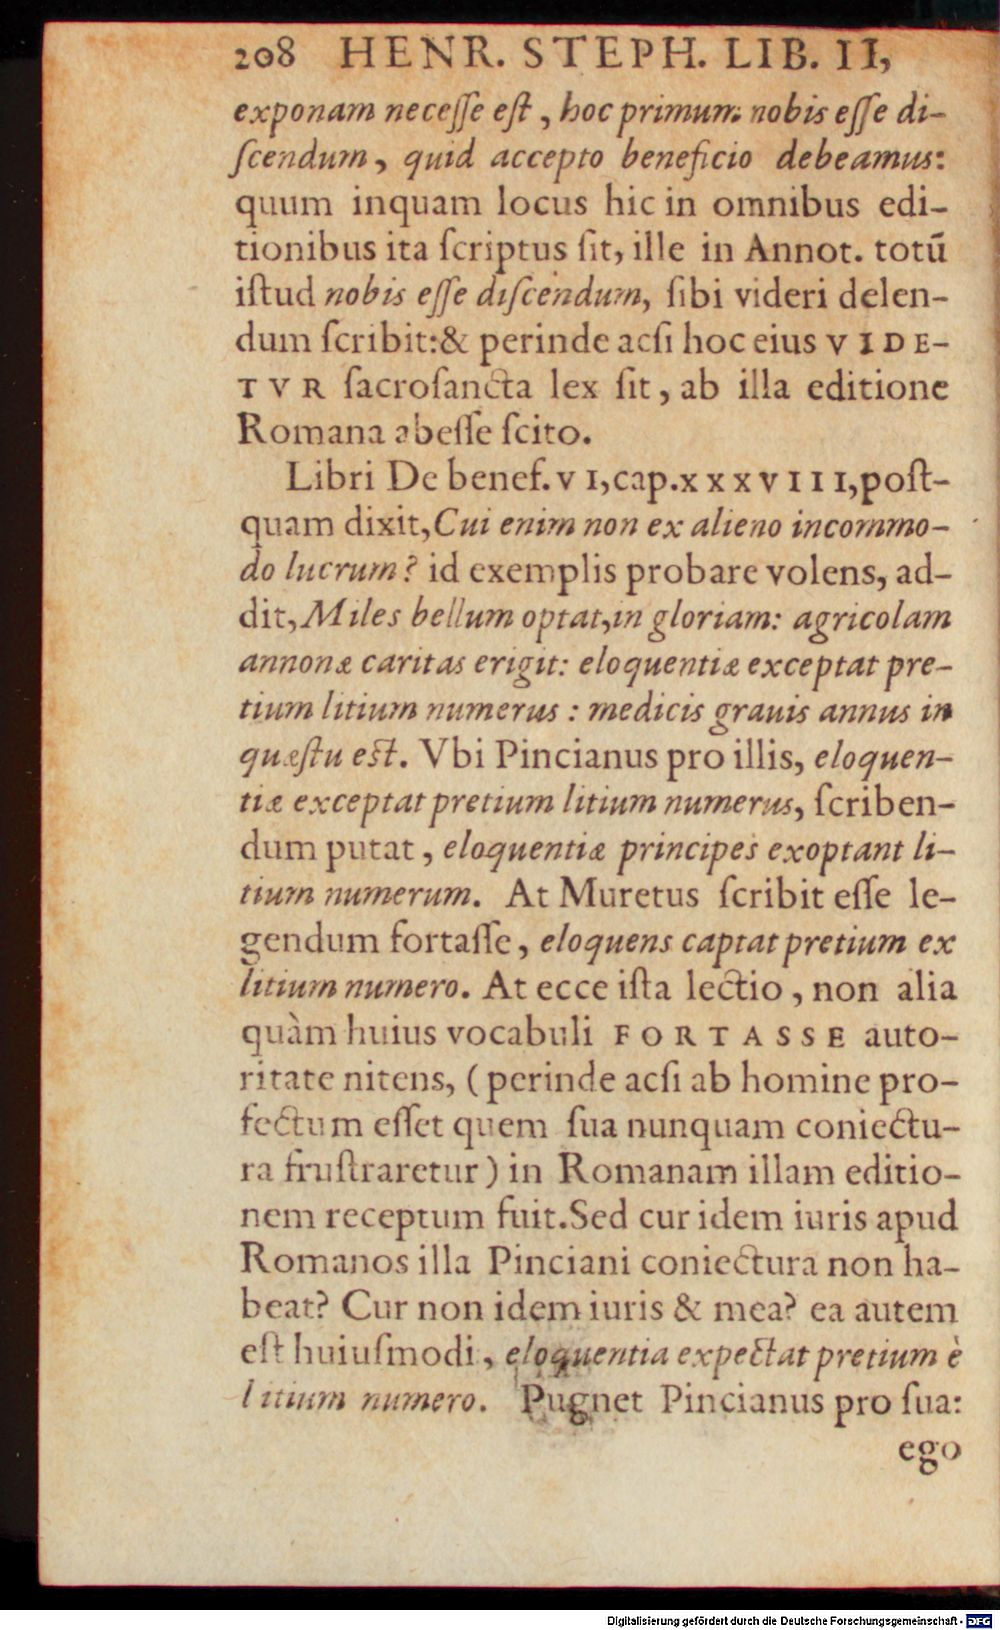 208 HENR. STEPH. LIB. II,
exponam neceſſe eſt, hoc primum nobis eſſe di-
ſcendum, quid accepto beneficio debeamus:
quum inquam locus hic in omnibus edi-
tionibus ita ſcriptus ſit, ille in Annot. totū
iſtud nobis eſſe diſcendum, ſibi videri delen-
dum ſcribit:& perinde acſi hoc eius VIDE-
TVR ſacroſancta lex ſit, ab illa editione
Romana abeſſe ſcito.
Libri De benef. VI, cap. XXXVIII, poſt-
quam dixit, Cui enim non ex alieno incommo-
do lucrum? id exemplis probare volens, ad-
dit, Miles bellum optat, in gloriam: agricolam
annonæ caritas erigit: eloquentiæ exceptat pre-
tium litium numerus: medicis grauis annus in
quæſtu eſt. Vbi Pincianus pro illis, eloquen-
tiæ exceptat pretium litium numerus, ſcriben-
dum putat, eloquentiæ principes exoptant li-
tium numerum. At Muretus ſcribit eſſe le-
gendum fortaſſe, eloquens captat pretium ex
litium numero. At ecce iſta lectio, non alia
quàm huius vocabuli FORTASSE auto-
ritate nitens, (perinde acſi ab homine pro-
fectum eſſet quem ſua nunquam coniectu-
ra fruſtraretur) in Romanam illam editio-
nem receptum fuit. Sed cur idem iuris apud
Romanos illa Pinciani coniectura non ha-
beat? Cur non idem iuris & mea? ea autem
eſt huiuſmodi, eloquentia expectat pretium è
litium numero. Pugnet Pincianus pro ſua:
ego
Digitalisierung gefördert durch die Deutsche Forschungsgemeinschaft - DFG